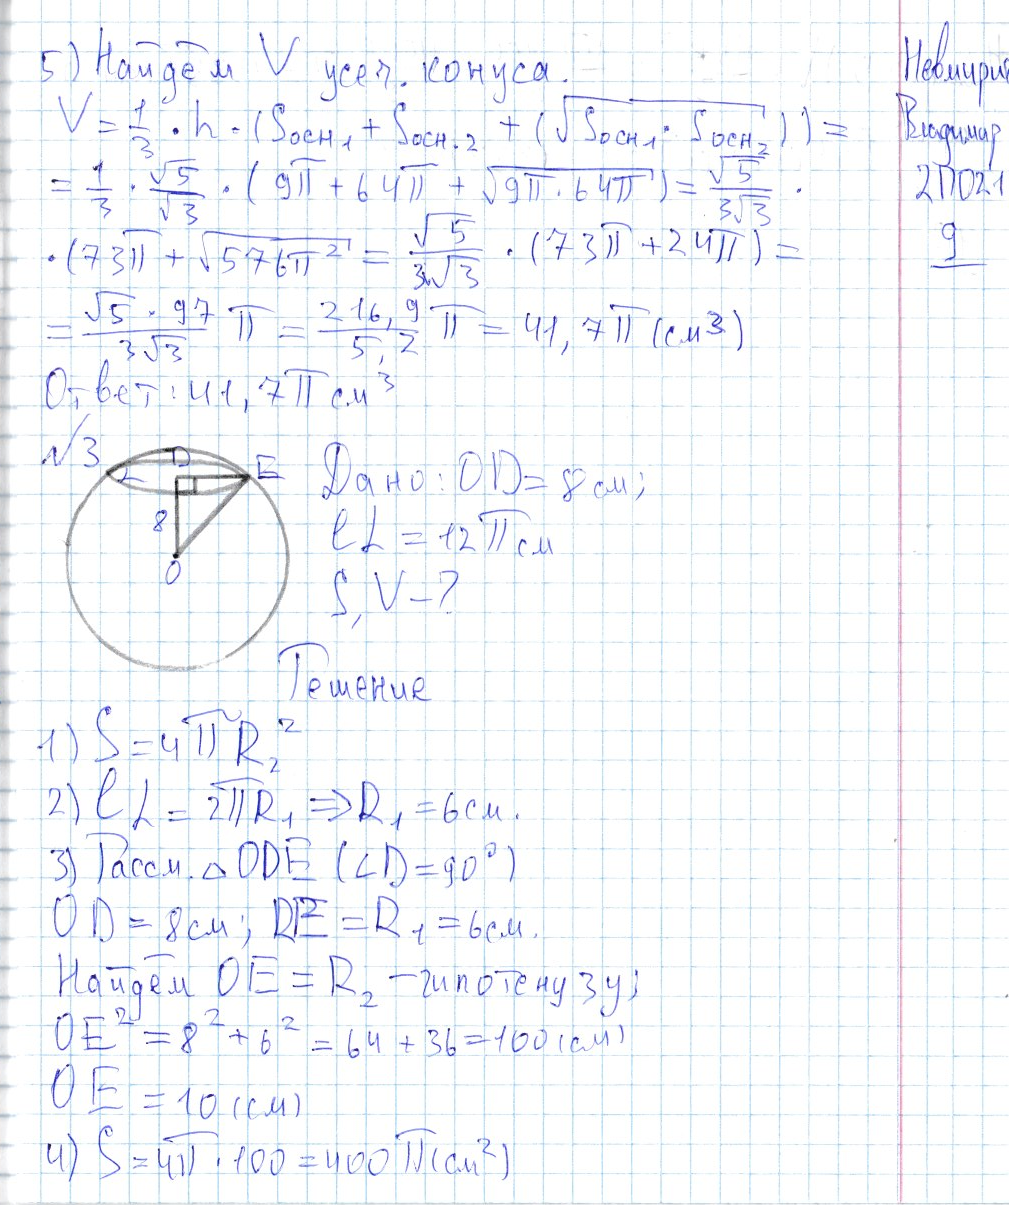 5) Найдём V усеч. конуса.
V = 1/3 · h · (Sосн1 + Sосн.2 + (√(Sосн1 · Sосн2))) =
= 1/3 · √5/√3 · (9π + 64π + √(9π · 64π)) = √5/(3√3) ·
· (73π + √(576π²) = √5/(3√3) · (73π + 24π) =
= (√5 · 97)/(3√3) π = 216,9/5,2 π = 41,7π (см³)
Ответ: 41,7π см³
Владимир
2П021
9
√3
L D E
8
O
Дано: OD = 8 см;
ℓL = 12π см
S, V - ?
Решение
1) S = 4πR₂²
2) ℓL = 2πR₁ ⇒ R₁ = 6 см.
3) Рассм. △ODE (∠D = 90°)
OD = 8 см; DE = R₁ = 6 см.
Найдём OE = R₂ - гипотенузу;
OE² = 8² + 6² = 64 + 36 = 100 (см)
OE = 10 (см)
4) S = 4π · 100 = 400π (см²)